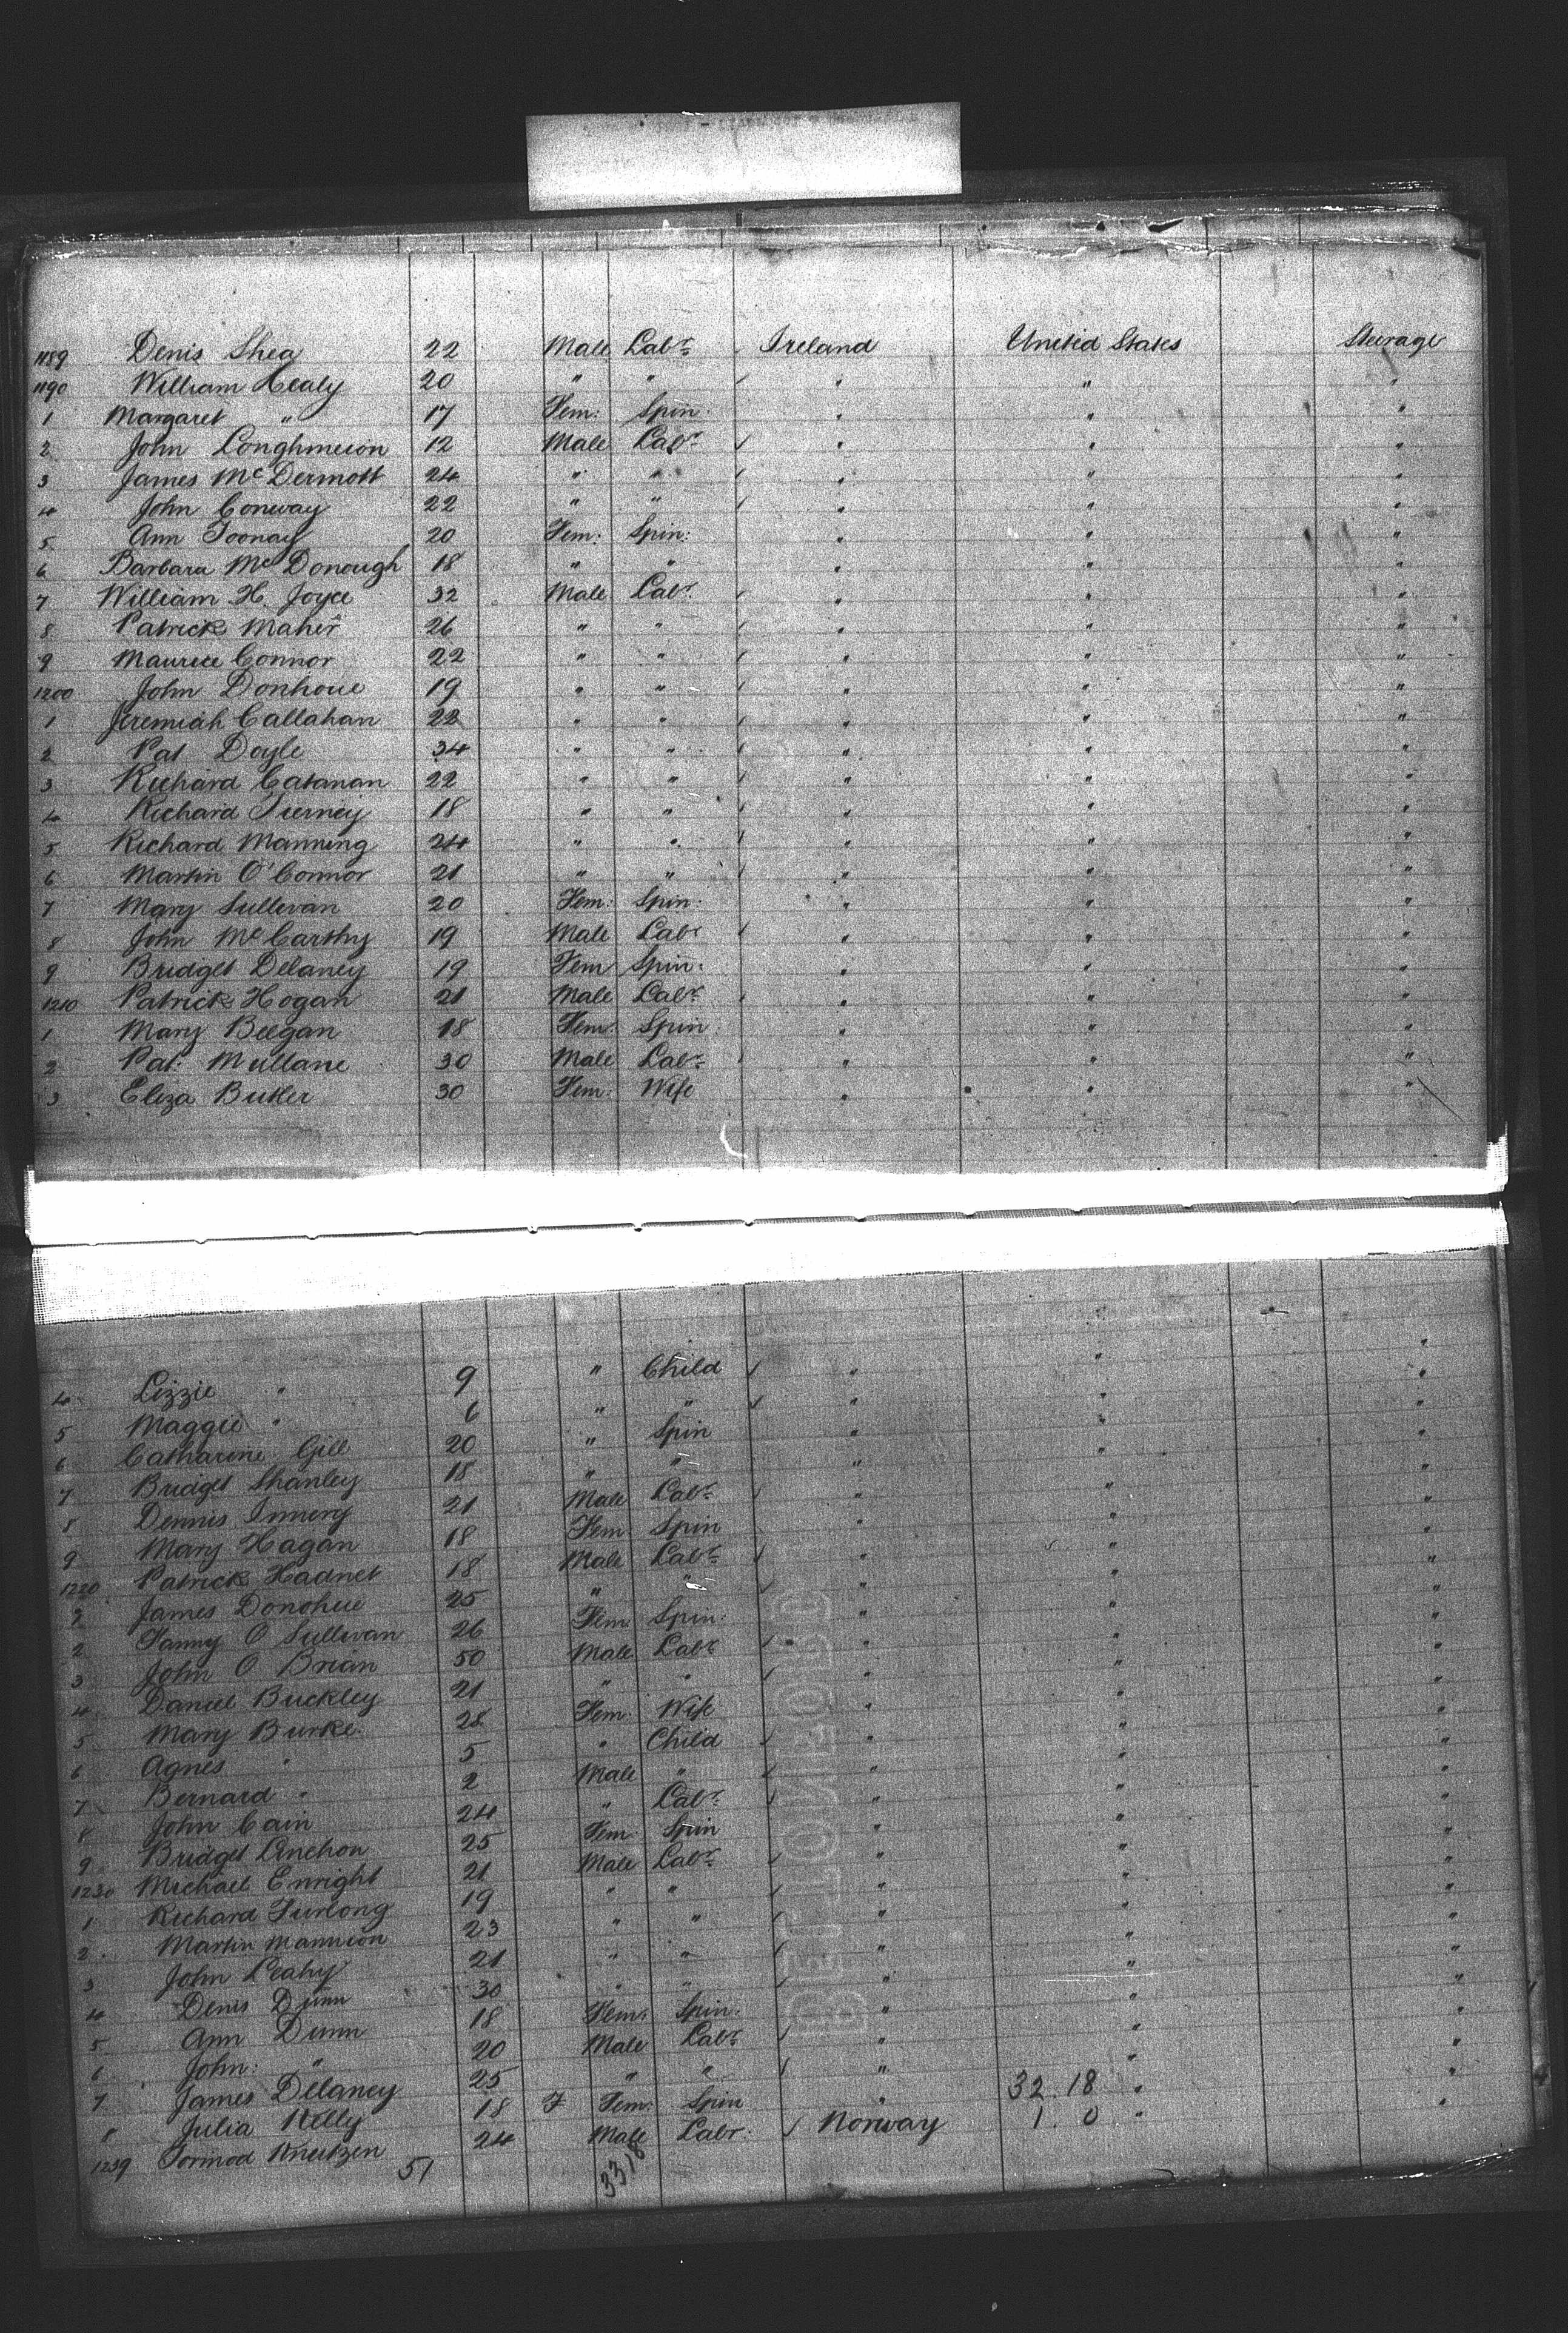 1189 Denis Shea 22 Male Labr. Ireland United States Steerage
1190 William Healy 20 " " " " "
1 Margaret " 17 Fem: Spin: " " "
2 John Loughmeion 12 Male Labr. " " "
3 James McDermott 24 " " " " "
4 John Conway 22 " " " " "
5 Ann Toonay 20 Fem: Spin: " " "
6 Barbara McDonough 18 " " " " "
7 William H. Joyce 32 Male Labr. " " "
8 Patrick Maher 26 " " " " "
9 Maurice Connor 22 " " " " "
1200 John Donhoue 19 " " " " "
1 Jeremiah Callahan 22 " " " " "
2 Pat Doyle 34 " " " " "
3 Richard Catanan 22 " " " " "
4 Richard Tierney 18 " " " " "
5 Richard Manning 24 " " " " "
6 Martin O'Connor 21 " " " " "
7 Mary Sullivan 20 Fem: Spin: " " "
8 John McCarthy 19 Male Labr " " "
9 Bridget Delaney 19 Fem Spin: " " "
1210 Patrick Hogan 21 Male Labr. " " "
1 Mary Beegan 18 Fem: Spin " " "
2 Pat: Mullane 30 Male Labr. " " "
3 Eliza Butler 30 Fem: Wife " " "
4 Lizzie " 9 " Child " " "
5 Maggie " 6 " " " " "
6 Catharine Gill 20 " Spin " " "
7 Bridget Shanley 18 " " " " "
8 Dennis 21 Male Labr. " " "
9 Mary Hagan 18 Fem Spin " " "
1220 Patrick Hadnet 18 Male Labr. " " "
James Donohue 25 " " " " "
2 Fanny O Sullivan 26 Fem Spin: " " "
3 John O Brian 50 Male Labr. " " "
4 Daniel Buckley 21 " " " " "
5 Mary Burke 28 Fem: Wife " " "
6 Agnes " 5 " Child " " "
7 Bernard " 2 Male " " " "
8 John Cain 24 " Labr. " " "
9 Bridget Linehon 25 Fem Spin " " "
1230 Michael Enright 21 Male Labr. " " "
1 Richard Furlong 19 " " " " "
2 Martin Mannion 23 " " " " "
3 John Leahy 21 " " " " "
4 Denis Dunn 30 " " " " "
5 Ann Dunn 18 Fem: Spin: " " "
6 John: " 20 Male Labr. " " "
7 James Delaney 25 " " " " "
8 Julia Kelly 18 F Fem: Spin " 32.18 " "
1239 Tormod Knutzen 24 Male Labr: Norway 1.0 " "
51 33,18